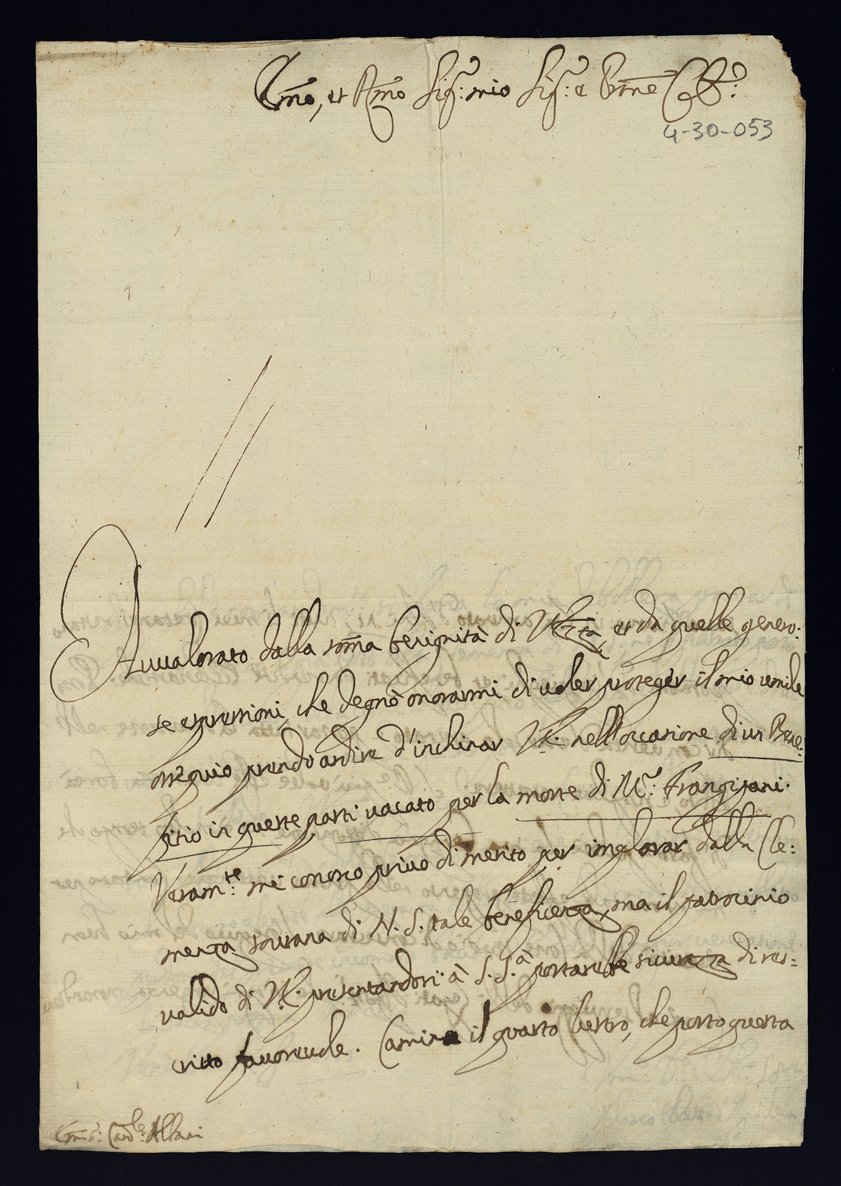 Emo, et Rmo Sig.r mio Sig.r e Prone Col.mo
4-30-053
Avvalorato dalla soma benignità di V. Em.za, et da quelle genero:
se espressioni, che degnò onorarmi di voler proteger il mio umile
ossequio prendo ardire d'inchinar V.E. nell'occasione di un Bene:
fitio in queste parti vacato per la morte di M.r Frangipani.
Veram.te mi conosco privo di merito per implorar dalla Cle:
menza sovrana di N. S. tale beneficenza, ma il patrocinio
valido di V.E. presentandosi à S. S.à portarebbe sicurezza di res=
critto favorevole. Camina il quarto lustro, che porto questa
Em.o Card.le Albani